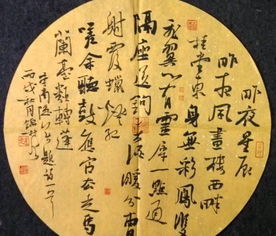 昨夜星辰
昨夜風畫樓西畔
桂堂東身無彩鳳雙
飛翼心有靈犀一點通
隔座送鉤春酒暖分曹
射覆蠟燈紅
嗟余聽鼓應官去走馬
蘭臺類轉蓬
李商隱
丙戌